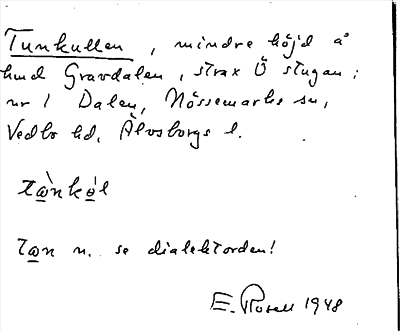 Tunkullen, mindre höjd å
hmd Gravdalen, strax Ö stugan i
nr 1 Dalen, Nössemarks sn,
Vedbo hd. Älvsborgs l.
tὼnkω̇l
tωn n. se dialektorden!
E. Rosell 1948